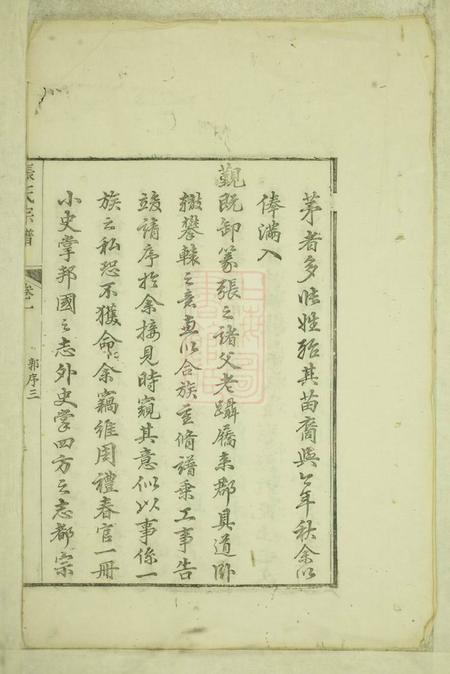 茅者多此姓殆其苗裔與今年秋余以
俸滿入
覲既卸篆張之諸父老躡屩來郡具道卧
轍攀轅之意並以合族重脩譜乘工事告
竣請序於余接見時窺其意似以事係一
族之私恐不獲命余竊維周禮春官一冊
小史掌邦國之志外史掌四方之志都宗
張氏宗譜
卷一
郭序三